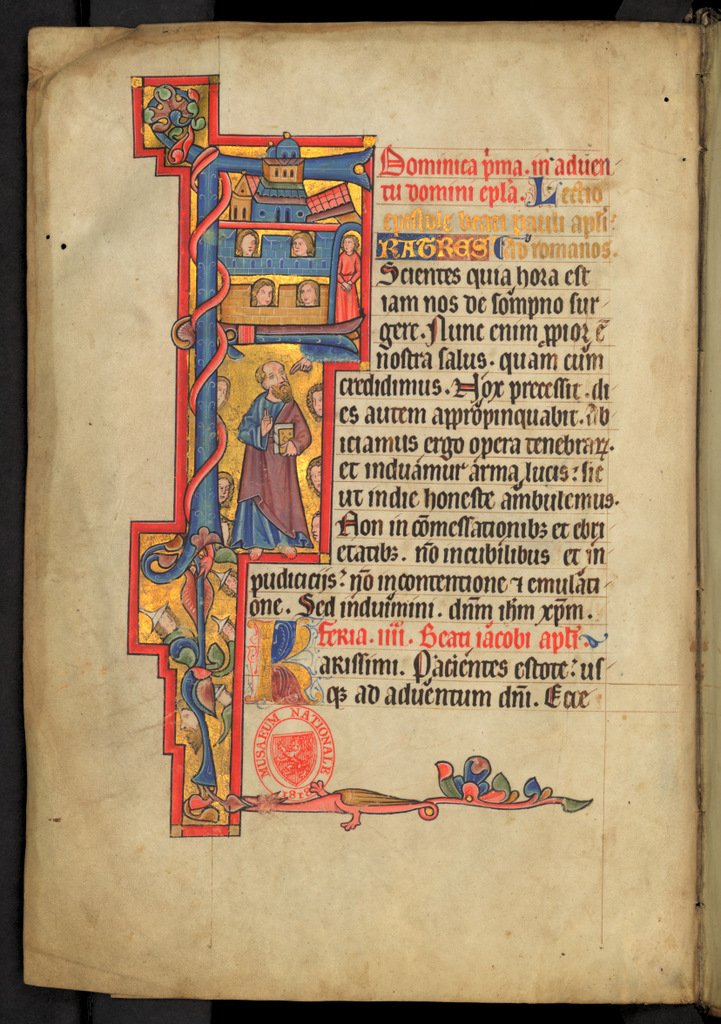 Dominica p̄ma. in aduen
tu domini epl̄a. Lectio
epistole beati pauli apl̄i
FRATRES Ad romanos.
Scientes quia hora est
iam nos de sompno sur
gere. Nunc enim ꝓpior ē
nostra salus. quam cum
credidimus. Nox precessit. di
es autem appropinquabit. Ab
iciamus ergo opera tenebraꝝ.
et induamur arma lucis: sic
ut in die honeste ambulemus.
Non in cōmessationibꝫ et ebri
etatibꝫ. nō in cubilibus et in
pudicicijs: nō in contentione ⁊ emulati
one. Sed induimini. dn̄m ih̄m xp̄m.
Feria. iiii. Beati iacobi apl̄i
Karissimi. Pacientes estote: us
qꝫ ad aduentum dn̄i. Ecce
MUSAEUM NATIONALE
1818